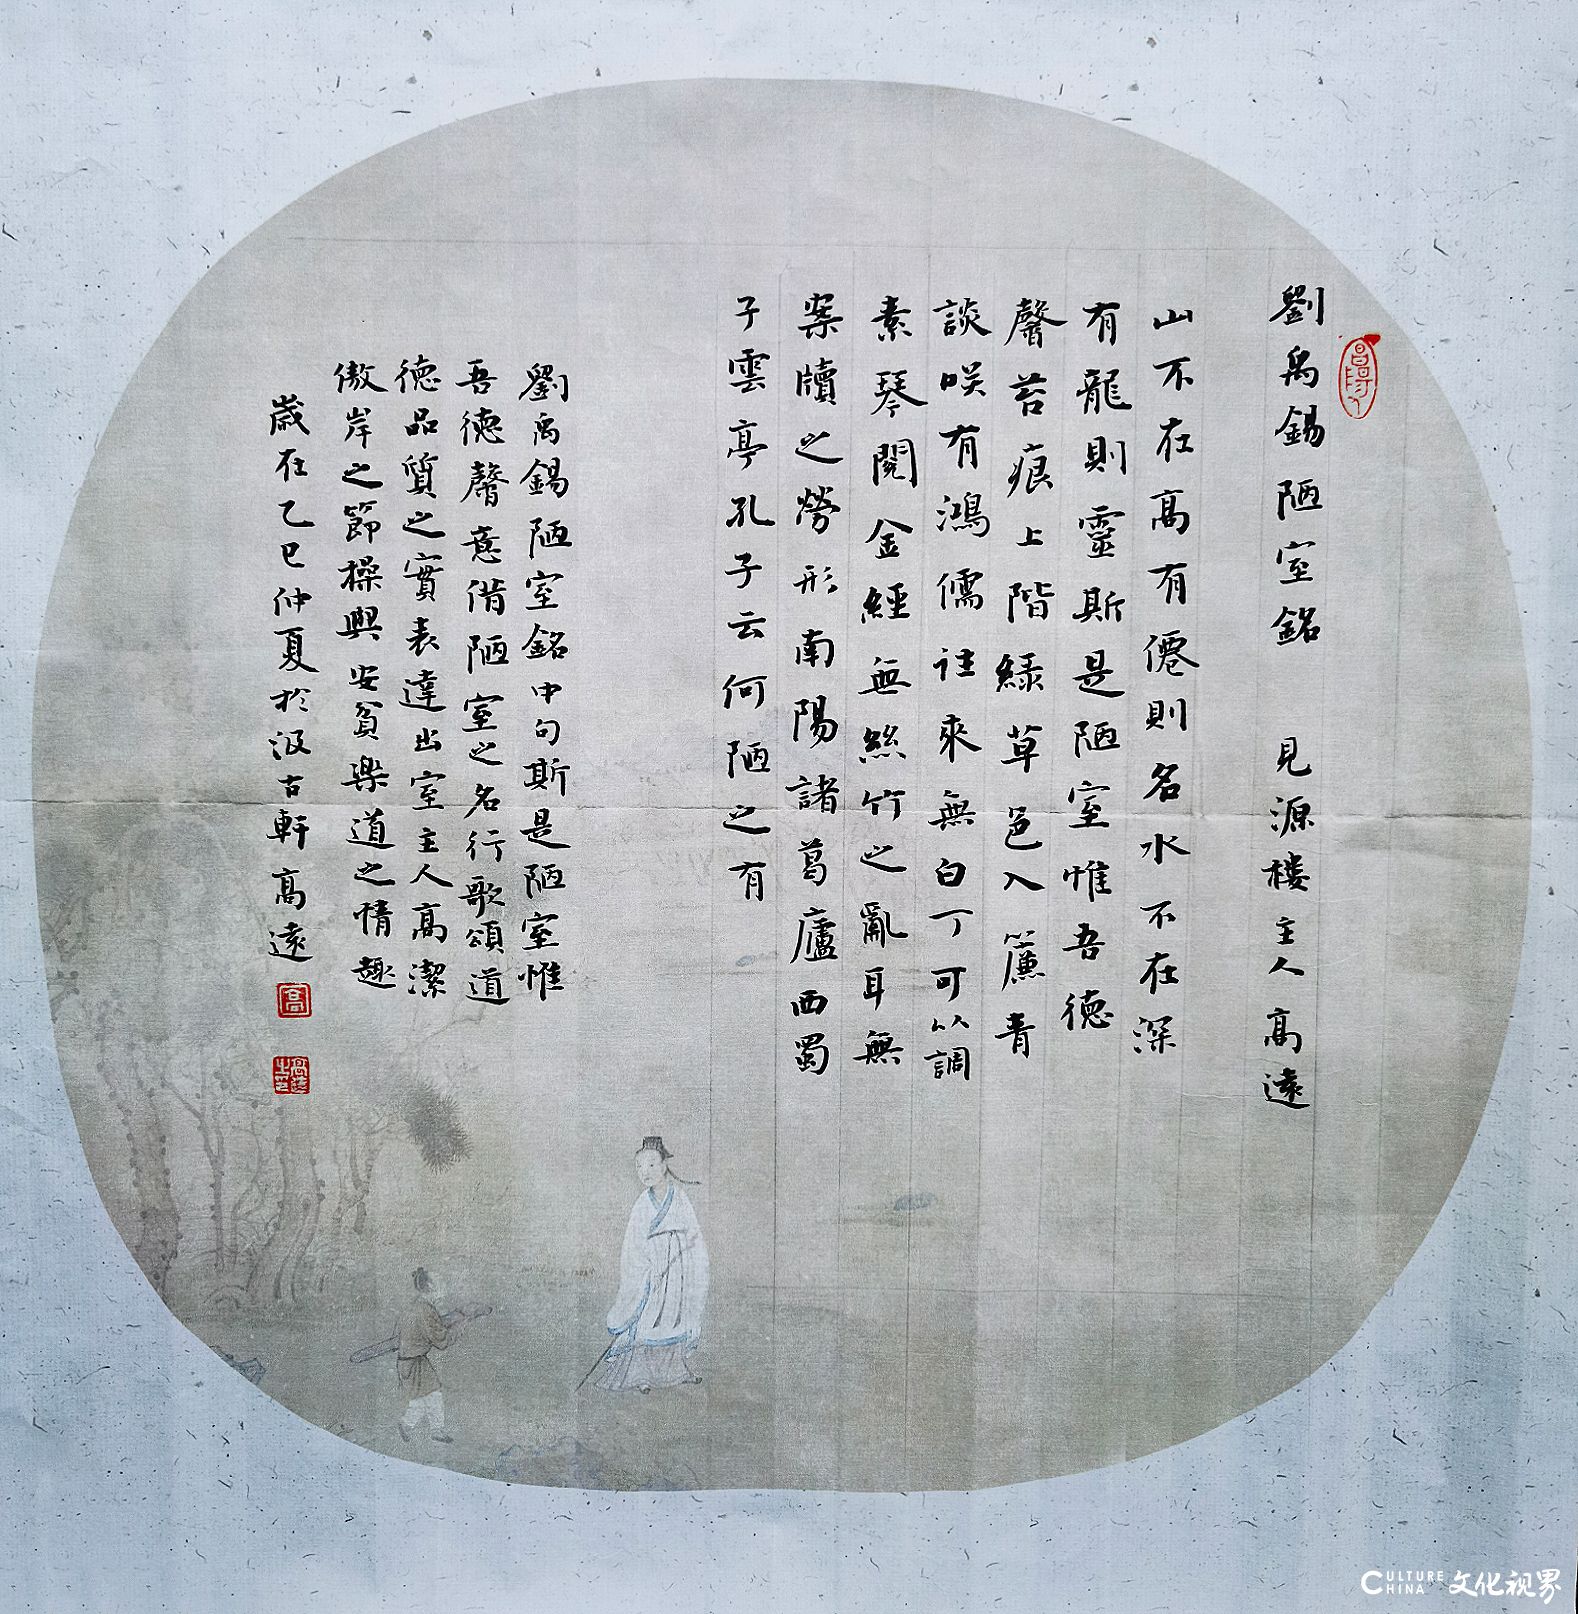 劉禹錫陋室銘 見源樓主人高遠
山不在高有僊則名水不在深
有龍則靈斯是陋室惟吾德
馨苔痕上階緑草色入簾青
談咲有鴻儒往來無白丁可以調
素琴閲金經無絲竹之亂耳無
案牘之勞形南陽諸葛廬西蜀
子雲亭孔子云何陋之有
劉禹錫陋室銘中句斯是陋室惟
吾德馨意借陋室之名行歌頌道
德品質之實表達出室主人高潔
傲岸之節操與安貧樂道之情趣
歲在乙巳仲夏於汲古軒高遠
高
CULTURE CHINA 文化视界